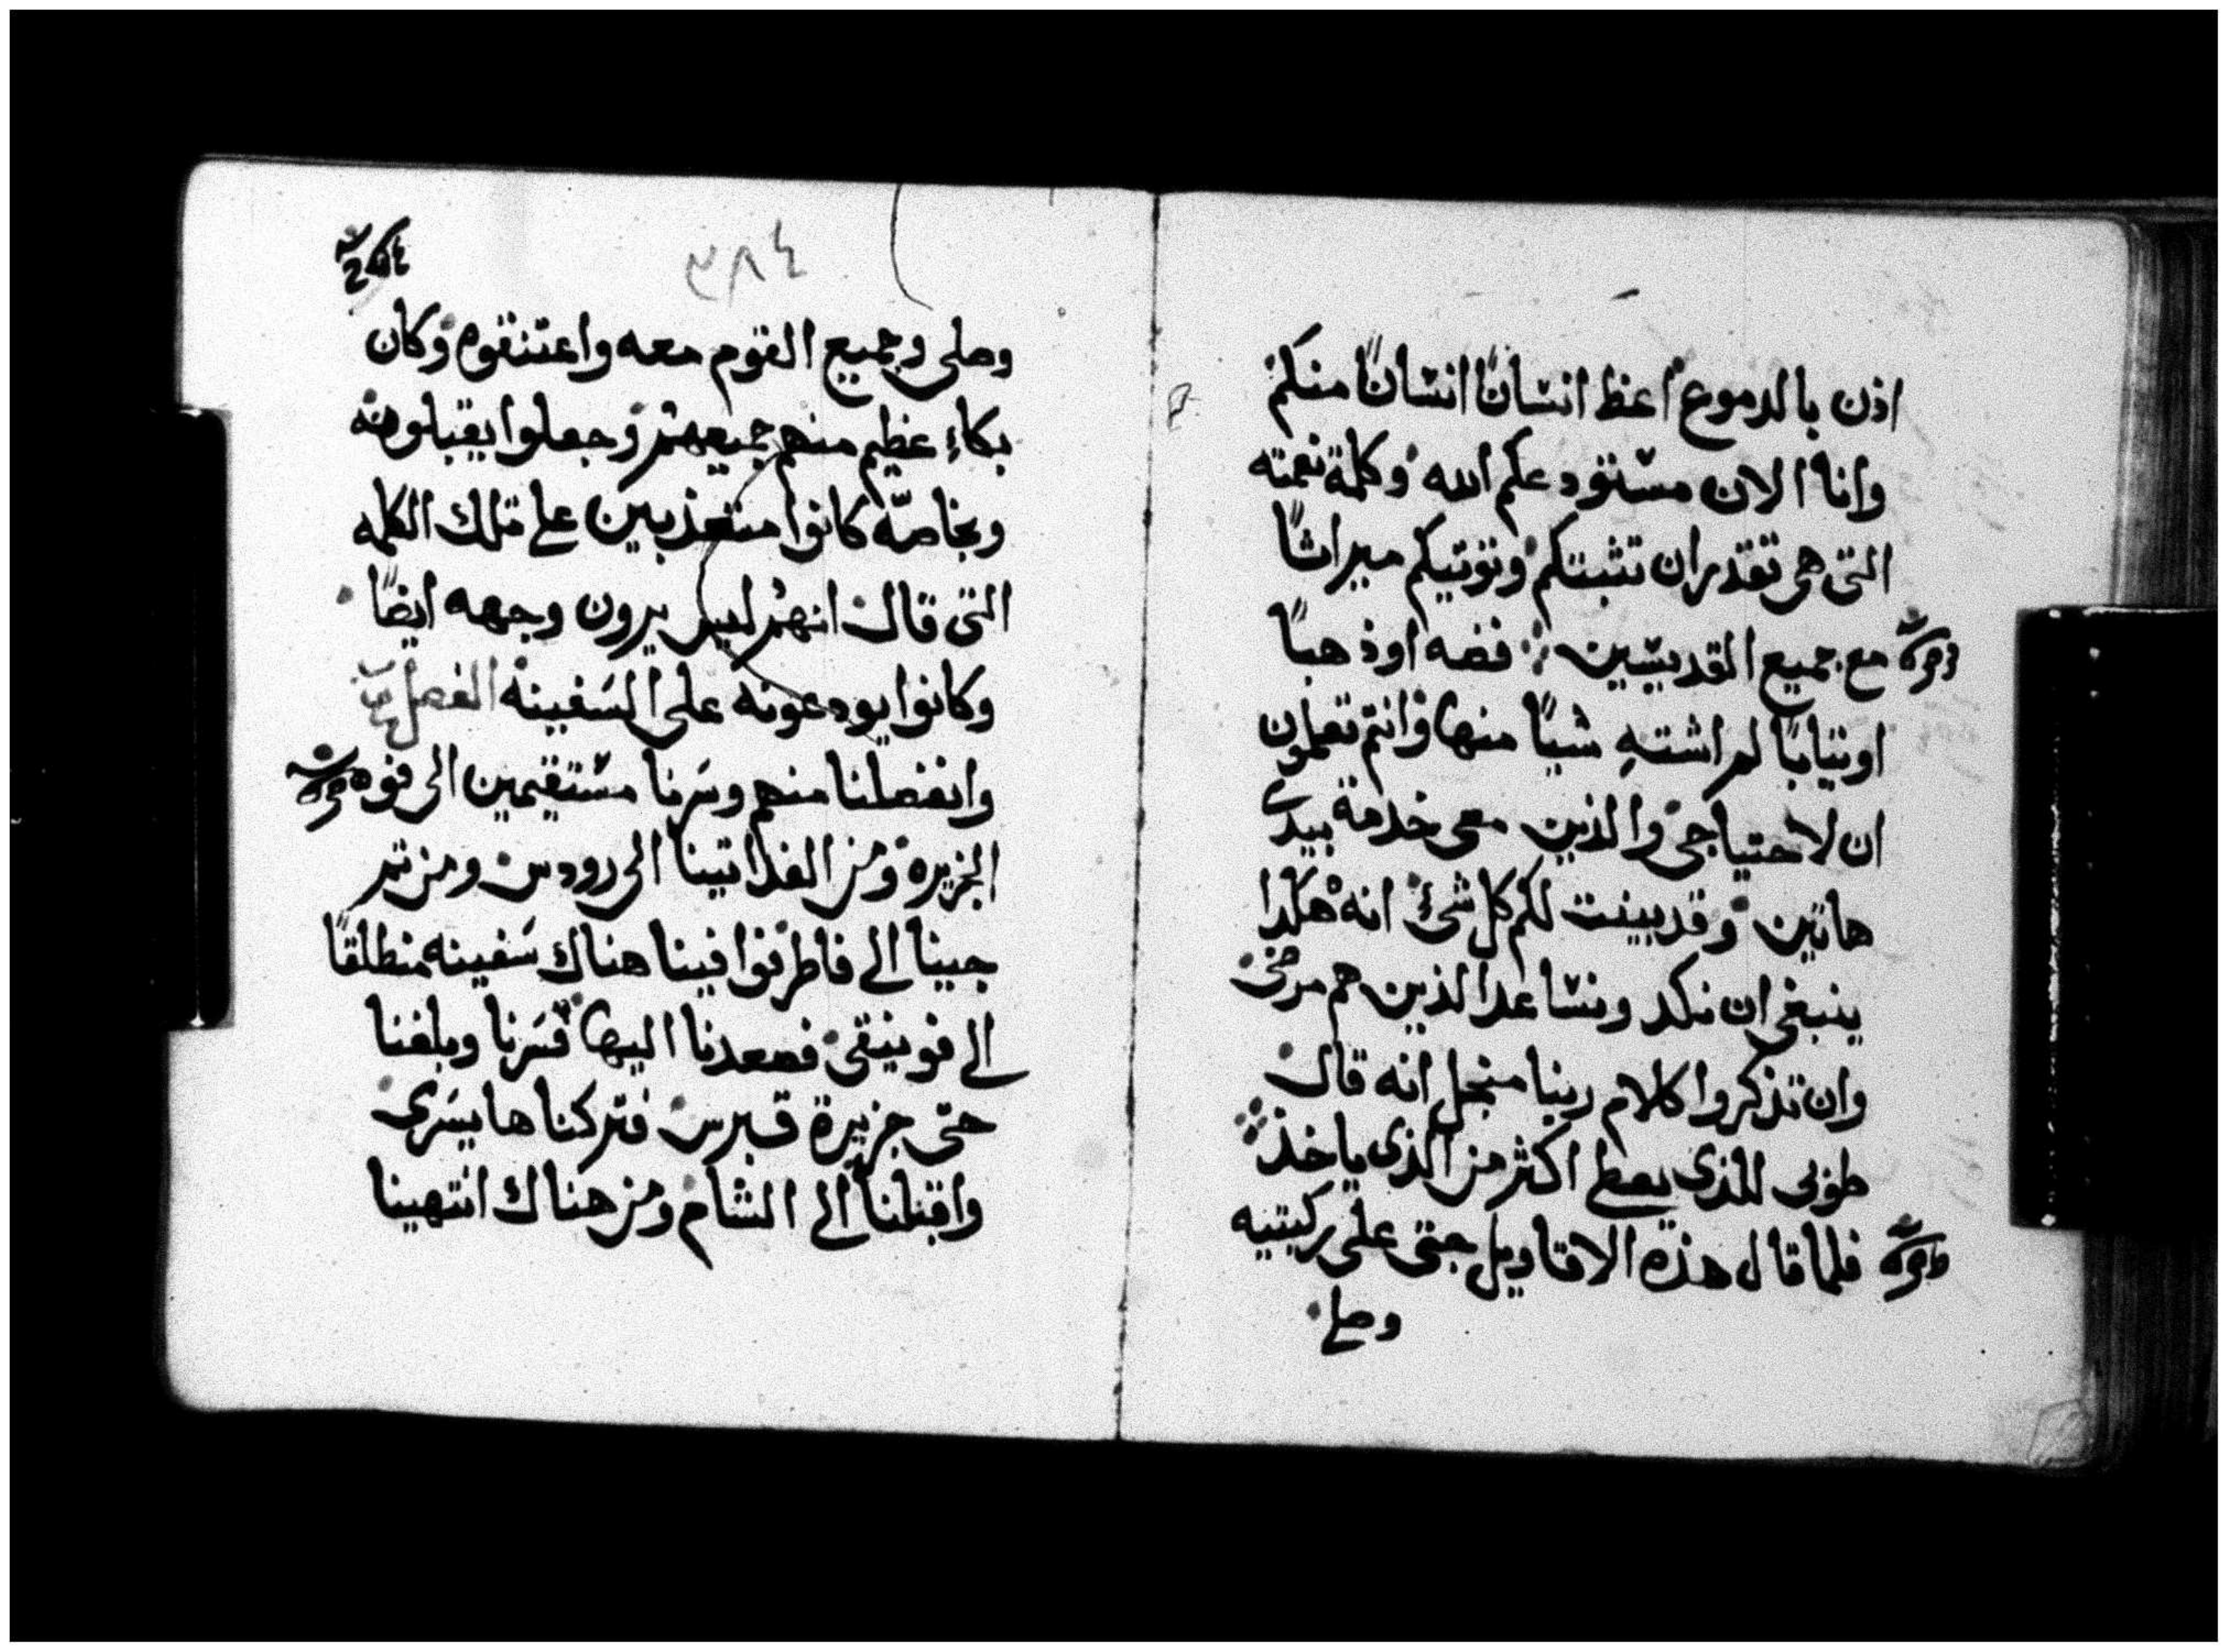 اذن بالدموع اعظ انسانًا انسانًا منكم
وانا الان مستودعكم الله وكلمة نعمته
التى هى تقدر ان تثبتكم وتوتيكم ميراثًا
مع جميع القديسين فضه اوذهبًا
اوثيابًا لم اشتهِ شيًا منها وانتم تعلمون
ان لاحتياجى والذين معى خدمة بيدى
هاتين وقد بينت لكم كل شئ انه هكذا
ينبغى ان نكد ونساعد الذين هم مرضى
وان تذكروا كلام ربنا منجل انه قال
طوبى للذى يعطى اكثر من الذى ياخذ
فلما قال هذه الاقاويل جثى على ركبتيه
وصلى
٣٨٤
وصلى وجميع القوم معه واعتنقوه وكان
بكاء عظيم منهم جميعهم وجعلوا يقبلونه
وبخاصّه كانوا متعذبين على تلك الكلمه
التى قال انهم ليس يرون وجهه ايضًا
وكانوا يودعونه على السفينه الفصل
وانفصلنا منهم وسرنا مستقيمين الى قوه
الجزيره ومن الغد اتينا الى رودس ومن ثم
جينا الى فاطرنوا فينا هناك سفينه منطلقًا
الى فونيقى فصعدنا اليها فسرنا وبلغنا
حتى جزيرة قبرس فتركناها يسرى
واقبلنا الى الشام ومن هناك انتهينا